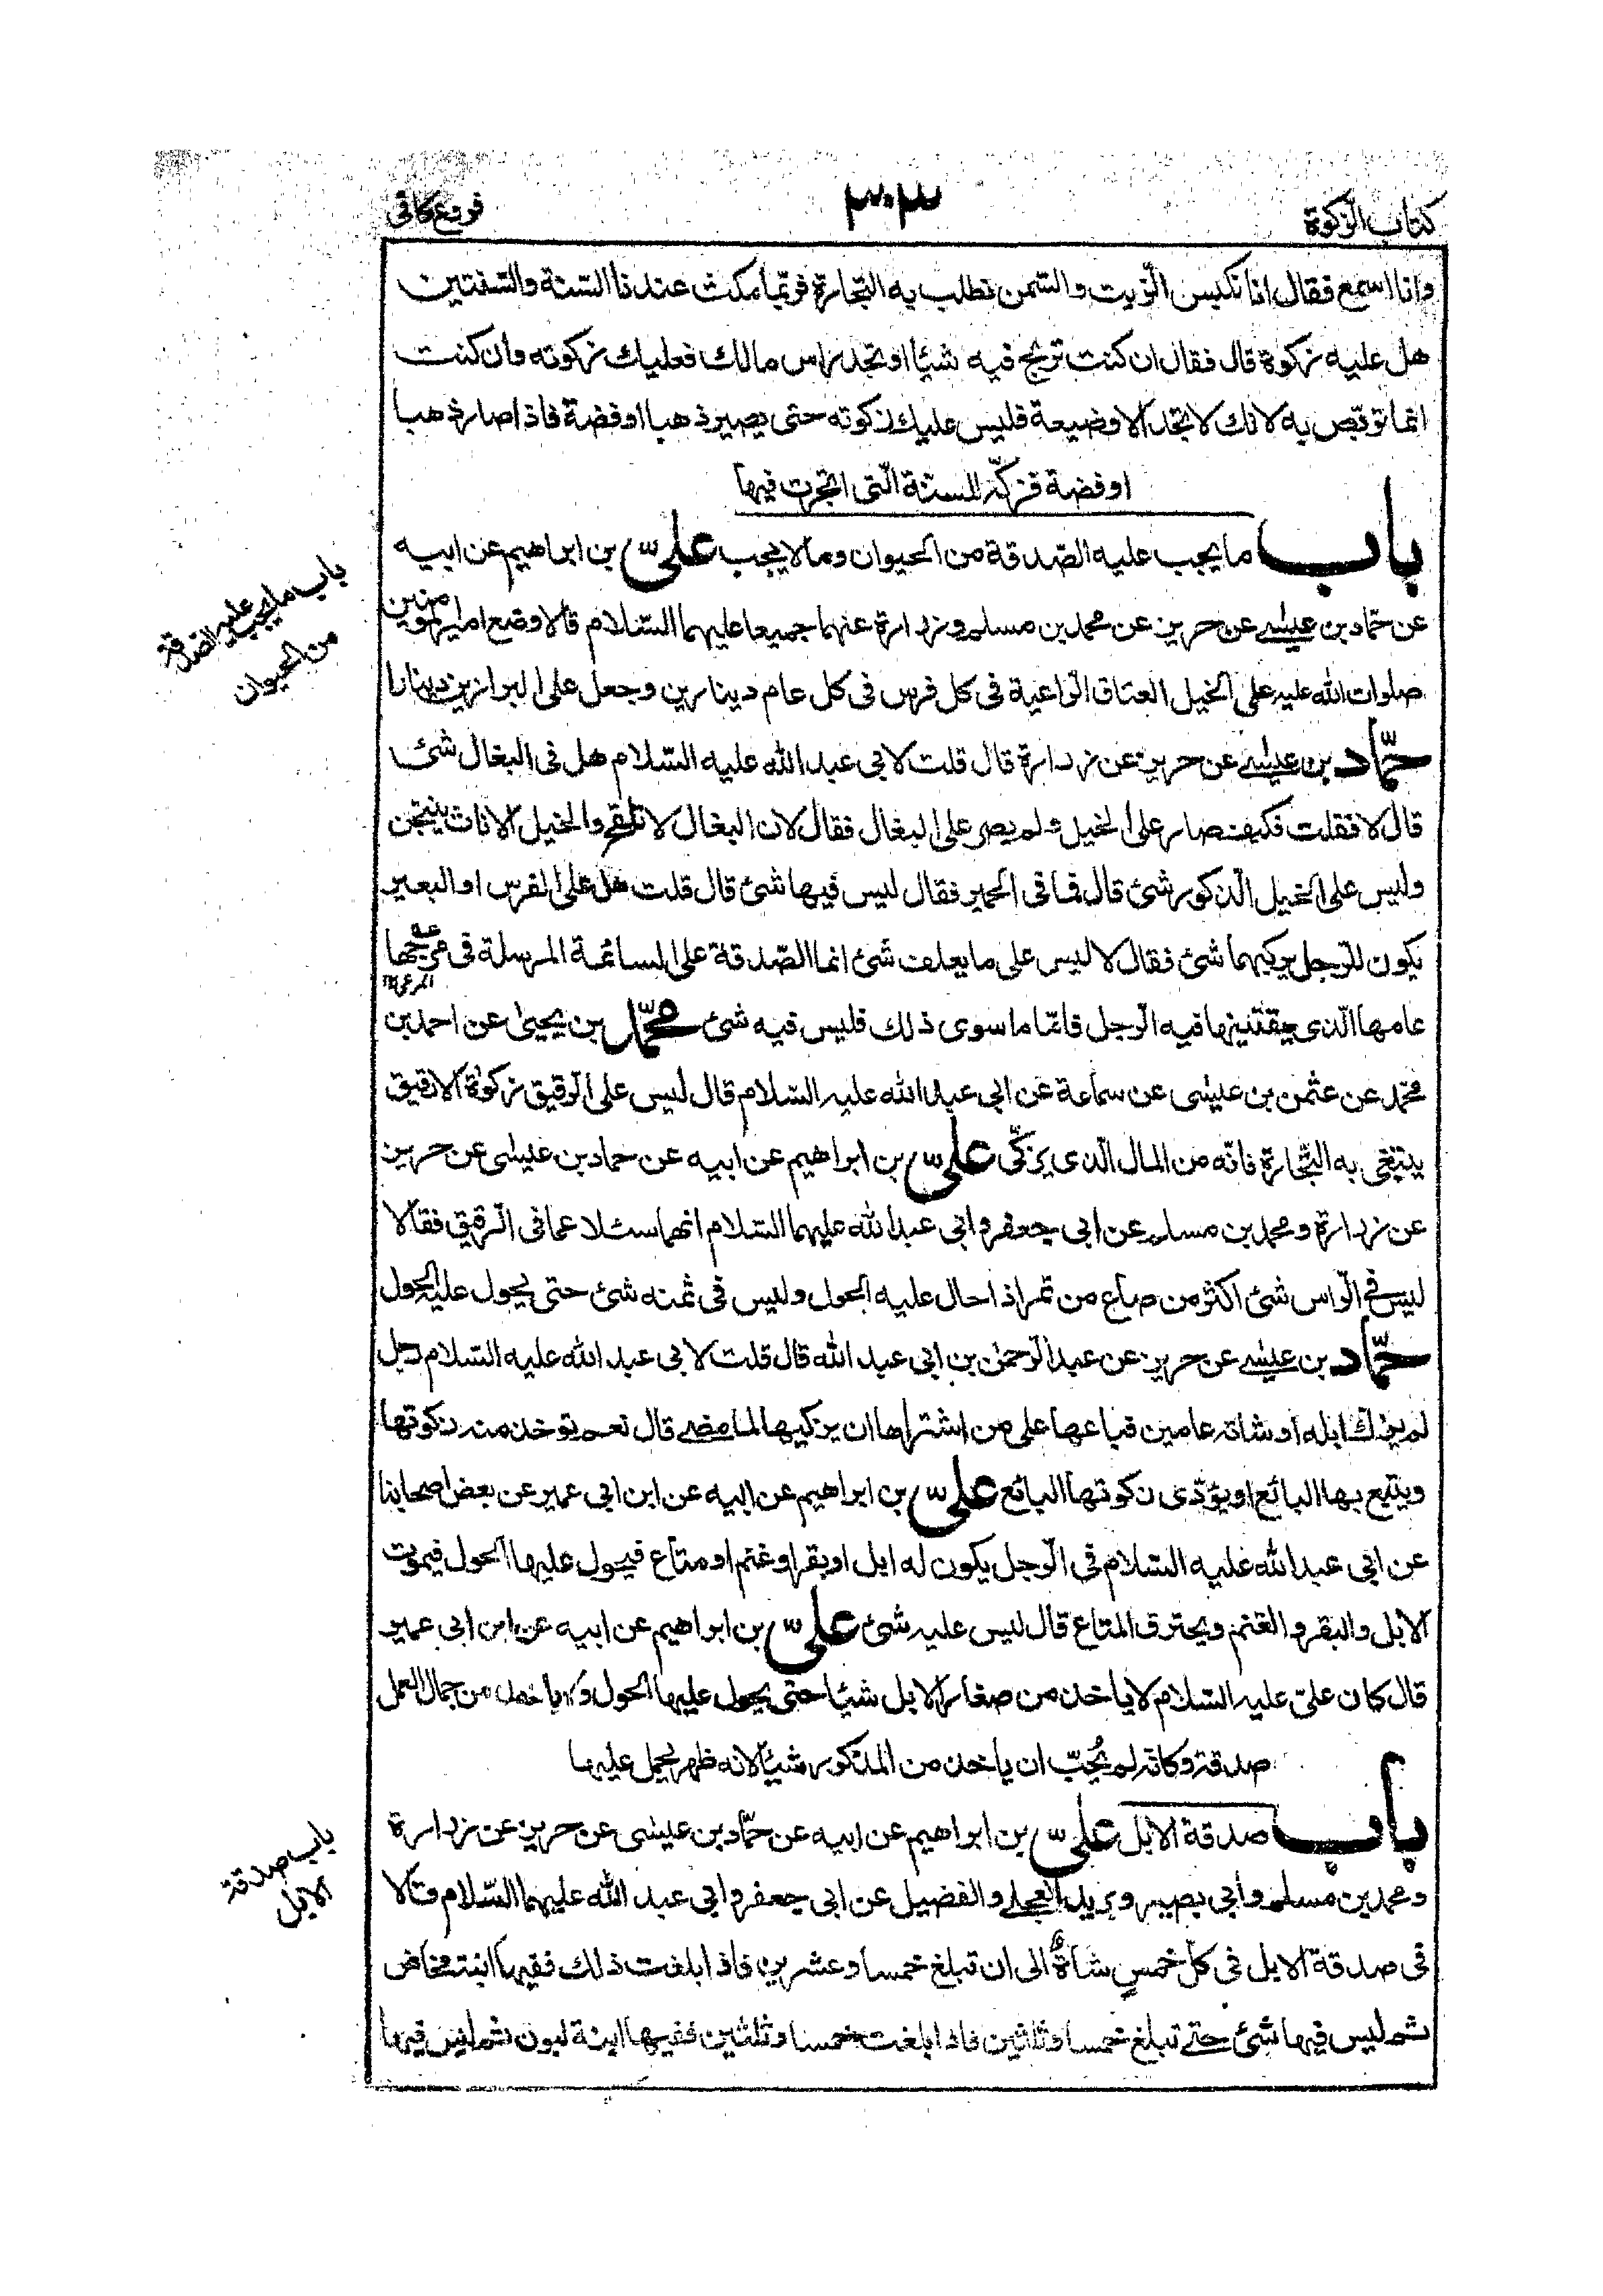 كتاب الزكوة
٣٠٣
فروع كافى
وانا اسمع فقال انا نكبس الزيت والسمن نطلب به التجارة فربما مكث عندنا السنة والسنتين
هل عليه زكوة قال فقال ان كنت تربح فيه شيئا او تجد راس مالك فعليك زكوته وان كنت
انما تربص به لانك لا تجد الا وضيعة فليس عليك زكوته حتى يصير ذهبا او فضة فاذا صار ذهبا
او فضة فزكه للسنة التى اتجرت فيها
باب ما يجب عليه الصدقة من الحيوان وما لا يجب علىّ بن ابراهيم عن ابيه
عن حماد بن عيسى عن حريز عن محمد بن مسلم وزرارة عنهما جميعا عليهما السلام قالا وضع امير المومنين
صلوات الله عليه على الخيل العتاق الراعية فى كل فرس فى كل عام دينارين وجعل على البراذين دينارا
حمّاد بن عيسى عن حريز عن زرارة قال قلت لابى عبد الله عليه السلام هل فى البغال شئ
قال لا فقلت فكيف صار على الخيل ولم يصر على البغال فقال لان البغال لا تلقح والخيل الاناث ينتجن
وليس على الخيل الذكور شئ قال فما فى الحمير فقال ليس فيها شئ قال قلت هل على الفرس او البعير
يكون للرجل يركبهما شئ فقال لا ليس على ما يعلف شئ انما الصدقة على السائمة المرسلة فى مرجها
المرعى
عامها الذى يقتنيها فيه الرجل فاما ما سوى ذلك فليس فيه شئ محمّد بن يحيى عن احمد بن
محمد عن عثمن بن عيسى عن سماعة عن ابى عبد الله عليه السلام قال ليس على الرقيق زكوة الا رقيق
يبتغى به التجارة فانه من المال الذى يزكّى علىّ بن ابراهيم عن ابيه عن حماد بن عيسى عن حريز
عن زرارة ومحمد بن مسلم عن ابى جعفر وابى عبد الله عليهما السلام انهما سئلا عما فى الرقيق فقالا
ليس فى الراس شئ اكثر من صاع من تمر اذا حال عليه الحول وليس فى ثمنه شئ حتى يحول عليه الحول
حمّاد بن عيسى عن حريز عن عبد الرحمن بن ابى عبد الله قال قلت لابى عبد الله عليه السلام رجل
لم يزك ابله او شاته عامين فباعها على من اشتراها ان يزكيها لما مضى قال نعم توخذ منه زكوتها
ويتبع بها البائع او يؤدى زكوتها البائع علىّ بن ابراهيم عن ابيه عن ابن ابى عمير عن بعض اصحابنا
عن ابى عبد الله عليه السلام فى الرجل يكون له ابل او بقر او غنم او متاع فيحول عليها الحول فيموت
الابل والبقر والغنم ويحترق المتاع قال ليس عليه شئ علىّ بن ابراهيم عن ابيه عن ابن ابى عمير
قال كان علىّ عليه السلام لا ياخذ من صغار الابل شيئا حتى يحول عليها الحول ولا ياخذ من جمال العمل
صدقة وكانه لم يحبّ ان ياخذ من الذكور شيئا لانه ظهر يحمل عليها
باب صدقة الابل علىّ بن ابراهيم عن ابيه عن حمّاد بن عيسى عن حريز عن زرارة
ومحمد بن مسلم وابى بصير وبريد العجلى والفضيل عن ابى جعفر وابى عبد الله عليهما السلام قالا
فى صدقة الابل فى كل خمس شاة الى ان تبلغ خمسا وعشرين فاذا بلغت ذلك ففيها ابنة مخاض
ثم ليس فيها شئ حتى تبلغ خمسا وثلثين فاذا بلغت خمسا وثلثين ففيها ابنة لبون ثم ليس فيها
باب ما يجب عليه الصدقة
من الحيوان
باب صدقة
الابل